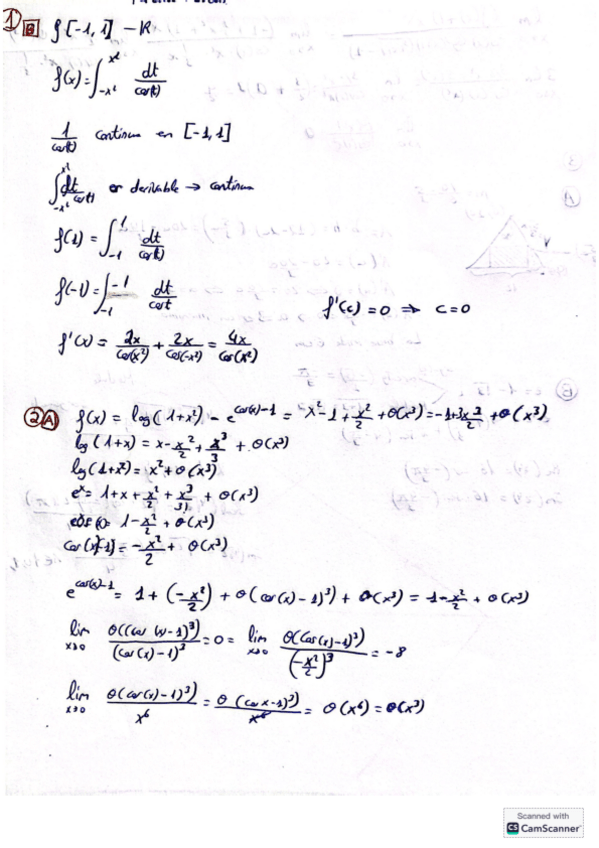 1) B f[-1, 1] → R
f(x) = ∫_{-x²}^{x²} dt/cos(t)
1/cos(t) continua en [-1, 1]
∫_{-x²}^{x²} dt/cos(t) es derivable → continua
f(1) = ∫_{-1}^{1} dt/cos(t)
f(-1) = ∫_{-1}^{-1} dt/cos t
f'(c) = 0 ⇒ c = 0
f'(x) = 2x/cos(x²) + 2x/cos(-x²) = 4x/cos(x²)
2) A) f(x) = log(1+x²) - e^{cos(x)-1} = x² - 1 + x²/2 + O(x³) = -1 + 3x²/2 + O(x³)
log(1+x) = x - x²/2 + x³/3 + O(x³)
log(1+x²) = x² + O(x³)
e^x = 1 + x + x²/2 + x³/3! + O(x³)
cos x = 1 - x²/2 + O(x³)
cos(x)-1 = -x²/2 + O(x³)
e^{cos(x)-1} = 1 + (-x²/2) + O(cos(x)-1)³) + O(x³) = 1 - x²/2 + O(x³)
lim x→0 O((cos(x)-1)³)/(cos(x)-1)³ = 0 = lim x→0 O(cos(x)-1)³)/(-x²/2)³ = -8
lim x→0 O(cos(x)-1)³)/x⁶ = O(cos x-1)³)/x⁶ = O(x⁶) = O(x³)
Scanned with
CS CamScanner